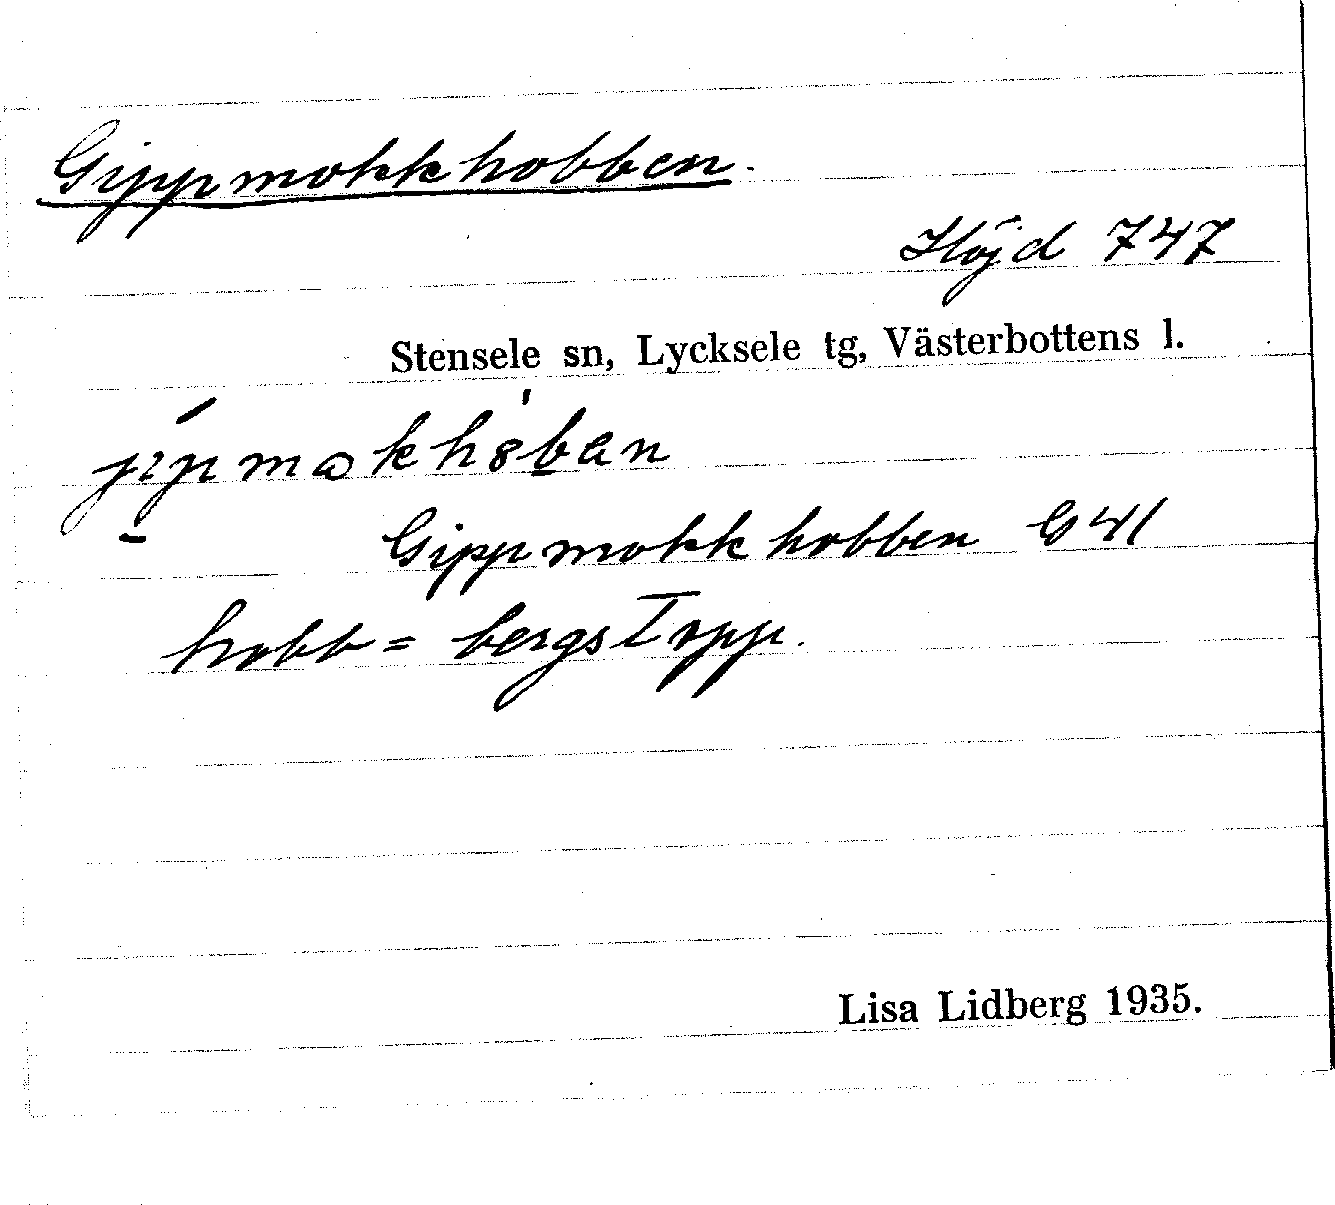 Gippmokkhobben.
Höjd 747
Stensele sn, Lycksele tg, Västerbottens l.
Gippmokkhobben G 41
hobb = bergstopp.
Lisa Lidberg 1935.